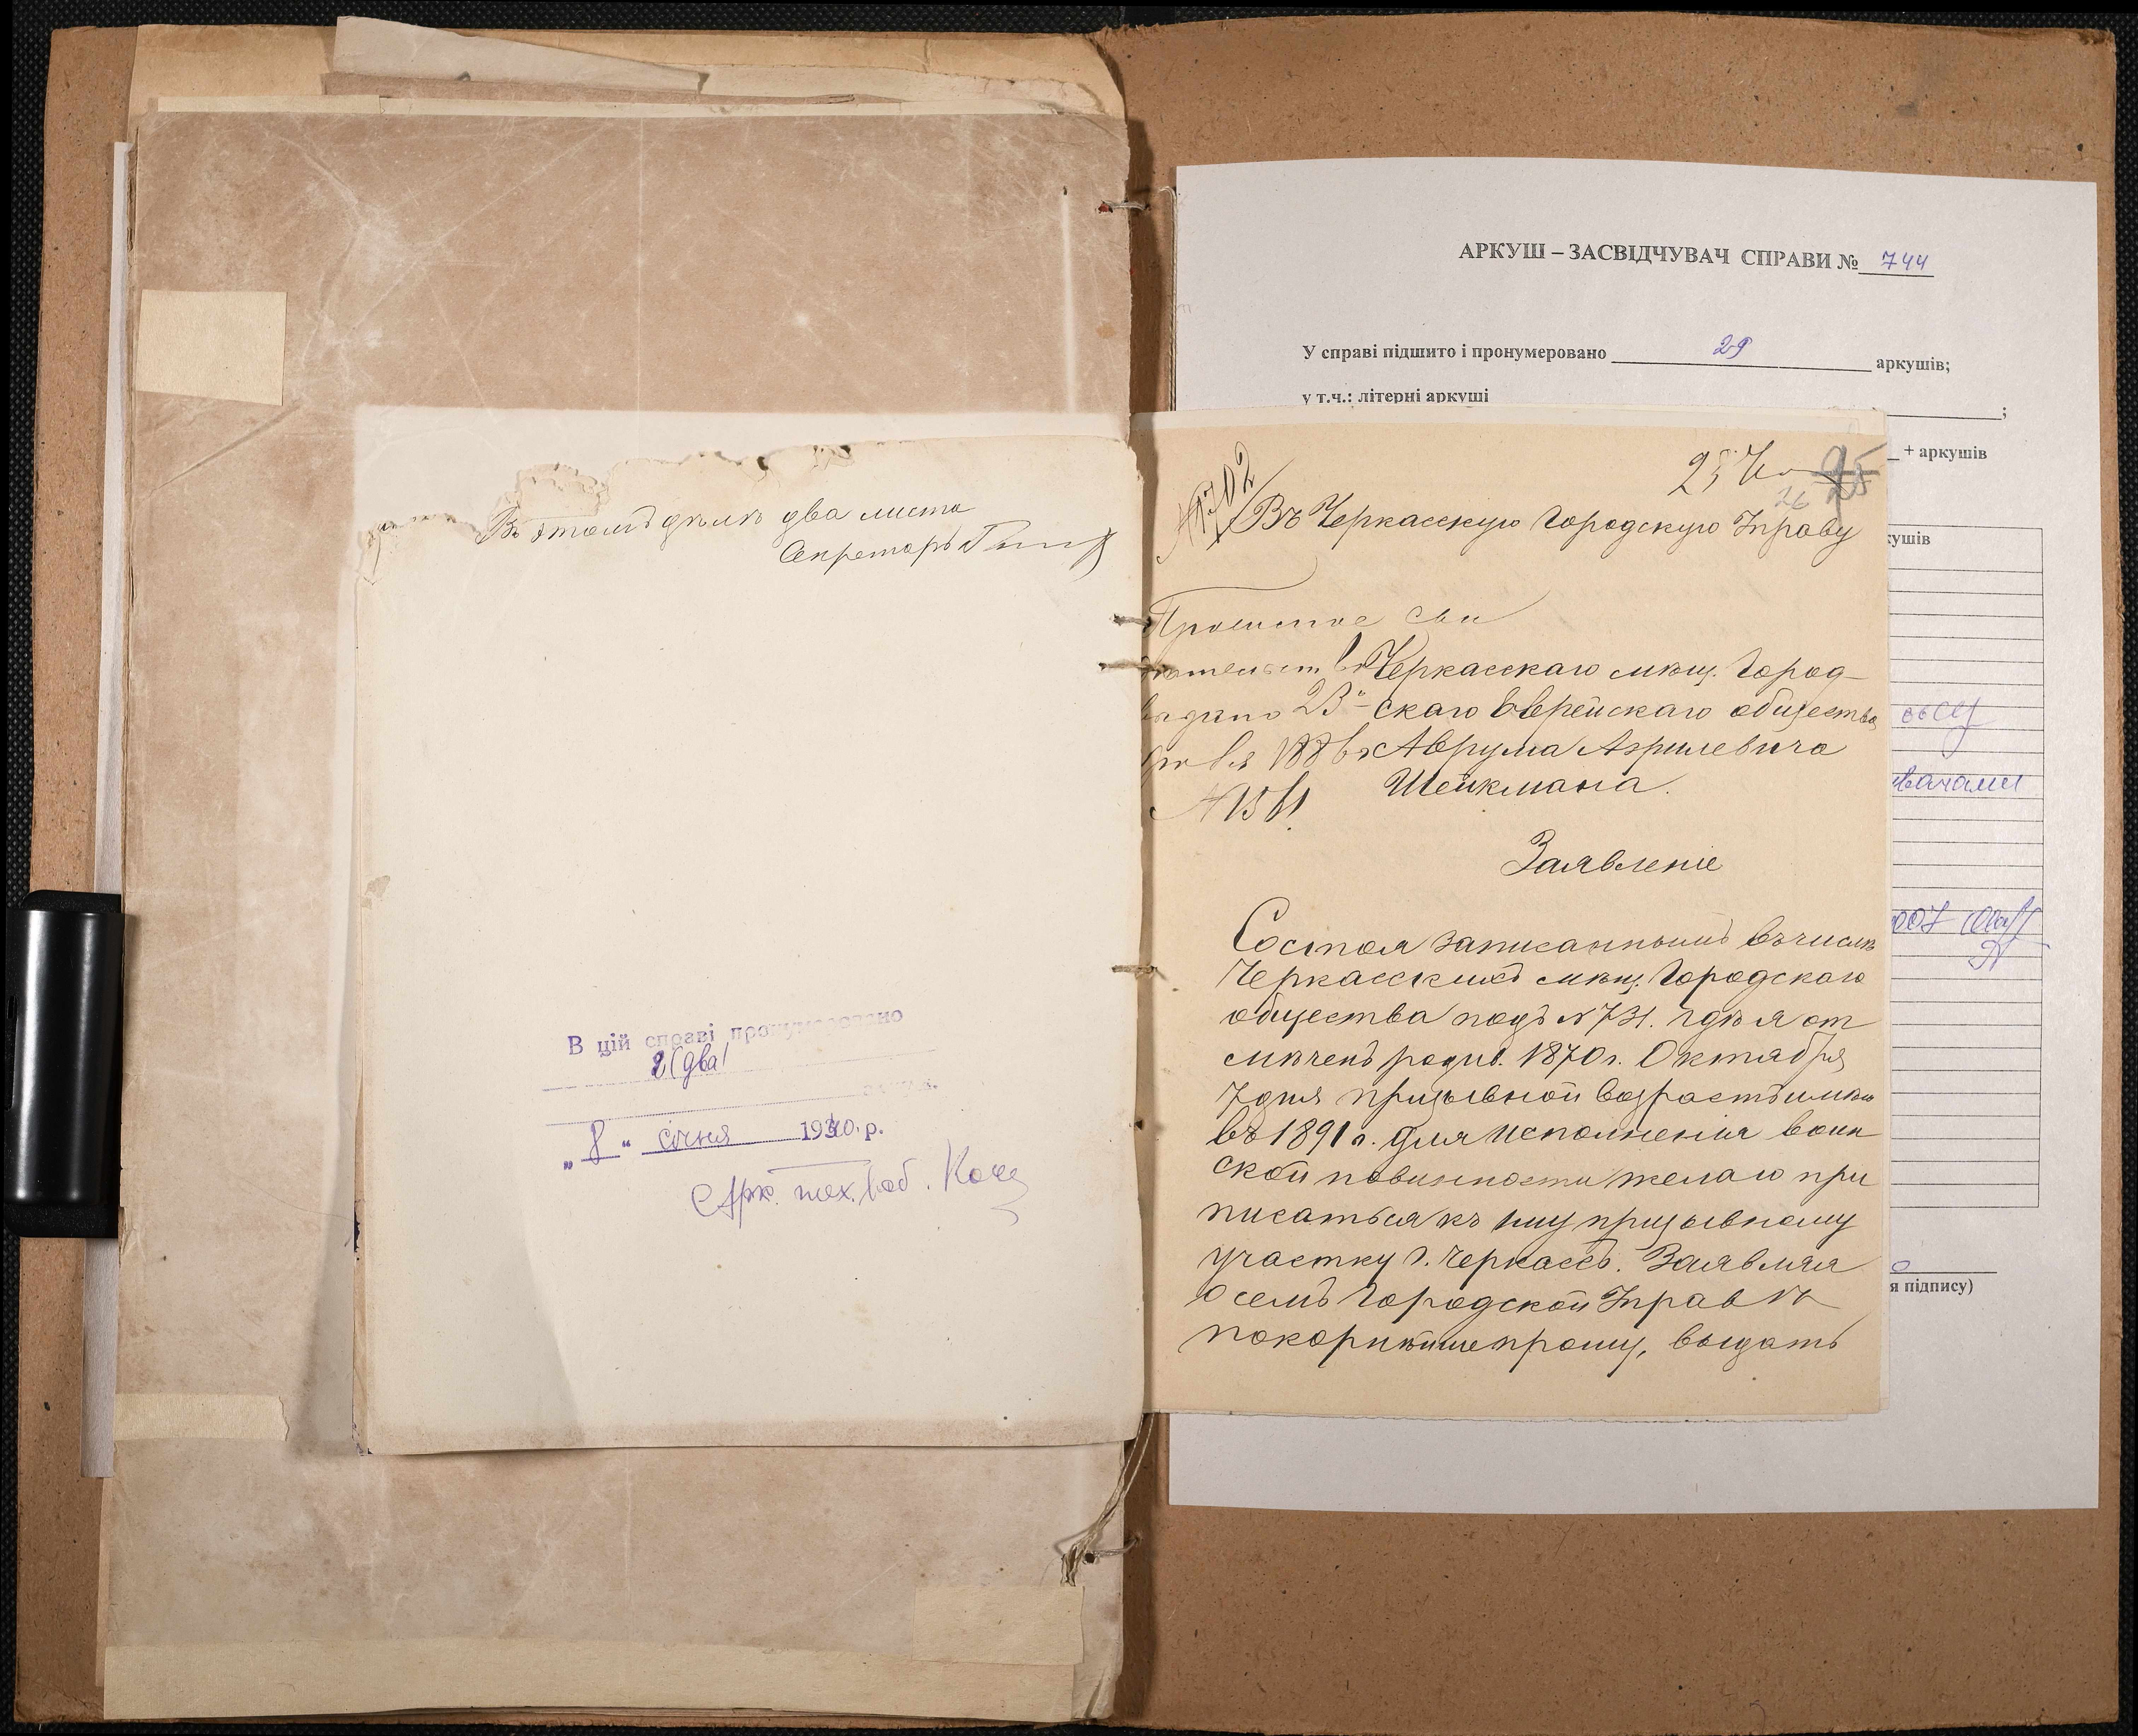 Въ этомъ дѣлѣ два листа
Секретарь
В цій справі пронумеровано
2 (два)
„ 8 " січня 1940 р.
Арх. тех.
АРКУШ – ЗАСВІДЧУВАЧ СПРАВИ № 744
У справі підшито і пронумеровано 29 аркушів;
у т.ч.: літерні аркуші ;
+ аркушів
кушів
я підпису)
№ 1702
25
26
Въ Черкасскую Городскую Управу
Черкасскаго мѣщ. Город-
скаго Еврейскаго общества
Аврума Азрилевича
Шейкмана.
выдано 23
№ 1561
Заявленіе
Состоя записаннымъ въ числѣ
Черкасскихъ мѣщ. Городскаго
общества подъ № 731. гдѣ я от
мѣченъ родив. 1870 г. Октября
7 дня призывной возрастъ имѣю
въ 1891 г. для исполненія воин
ской повинности желаю при
писаться къ 1му призывному
участку г. Черкассъ. Заявляя
о семъ Городской Управѣ
покорнѣйше прошу, выдать